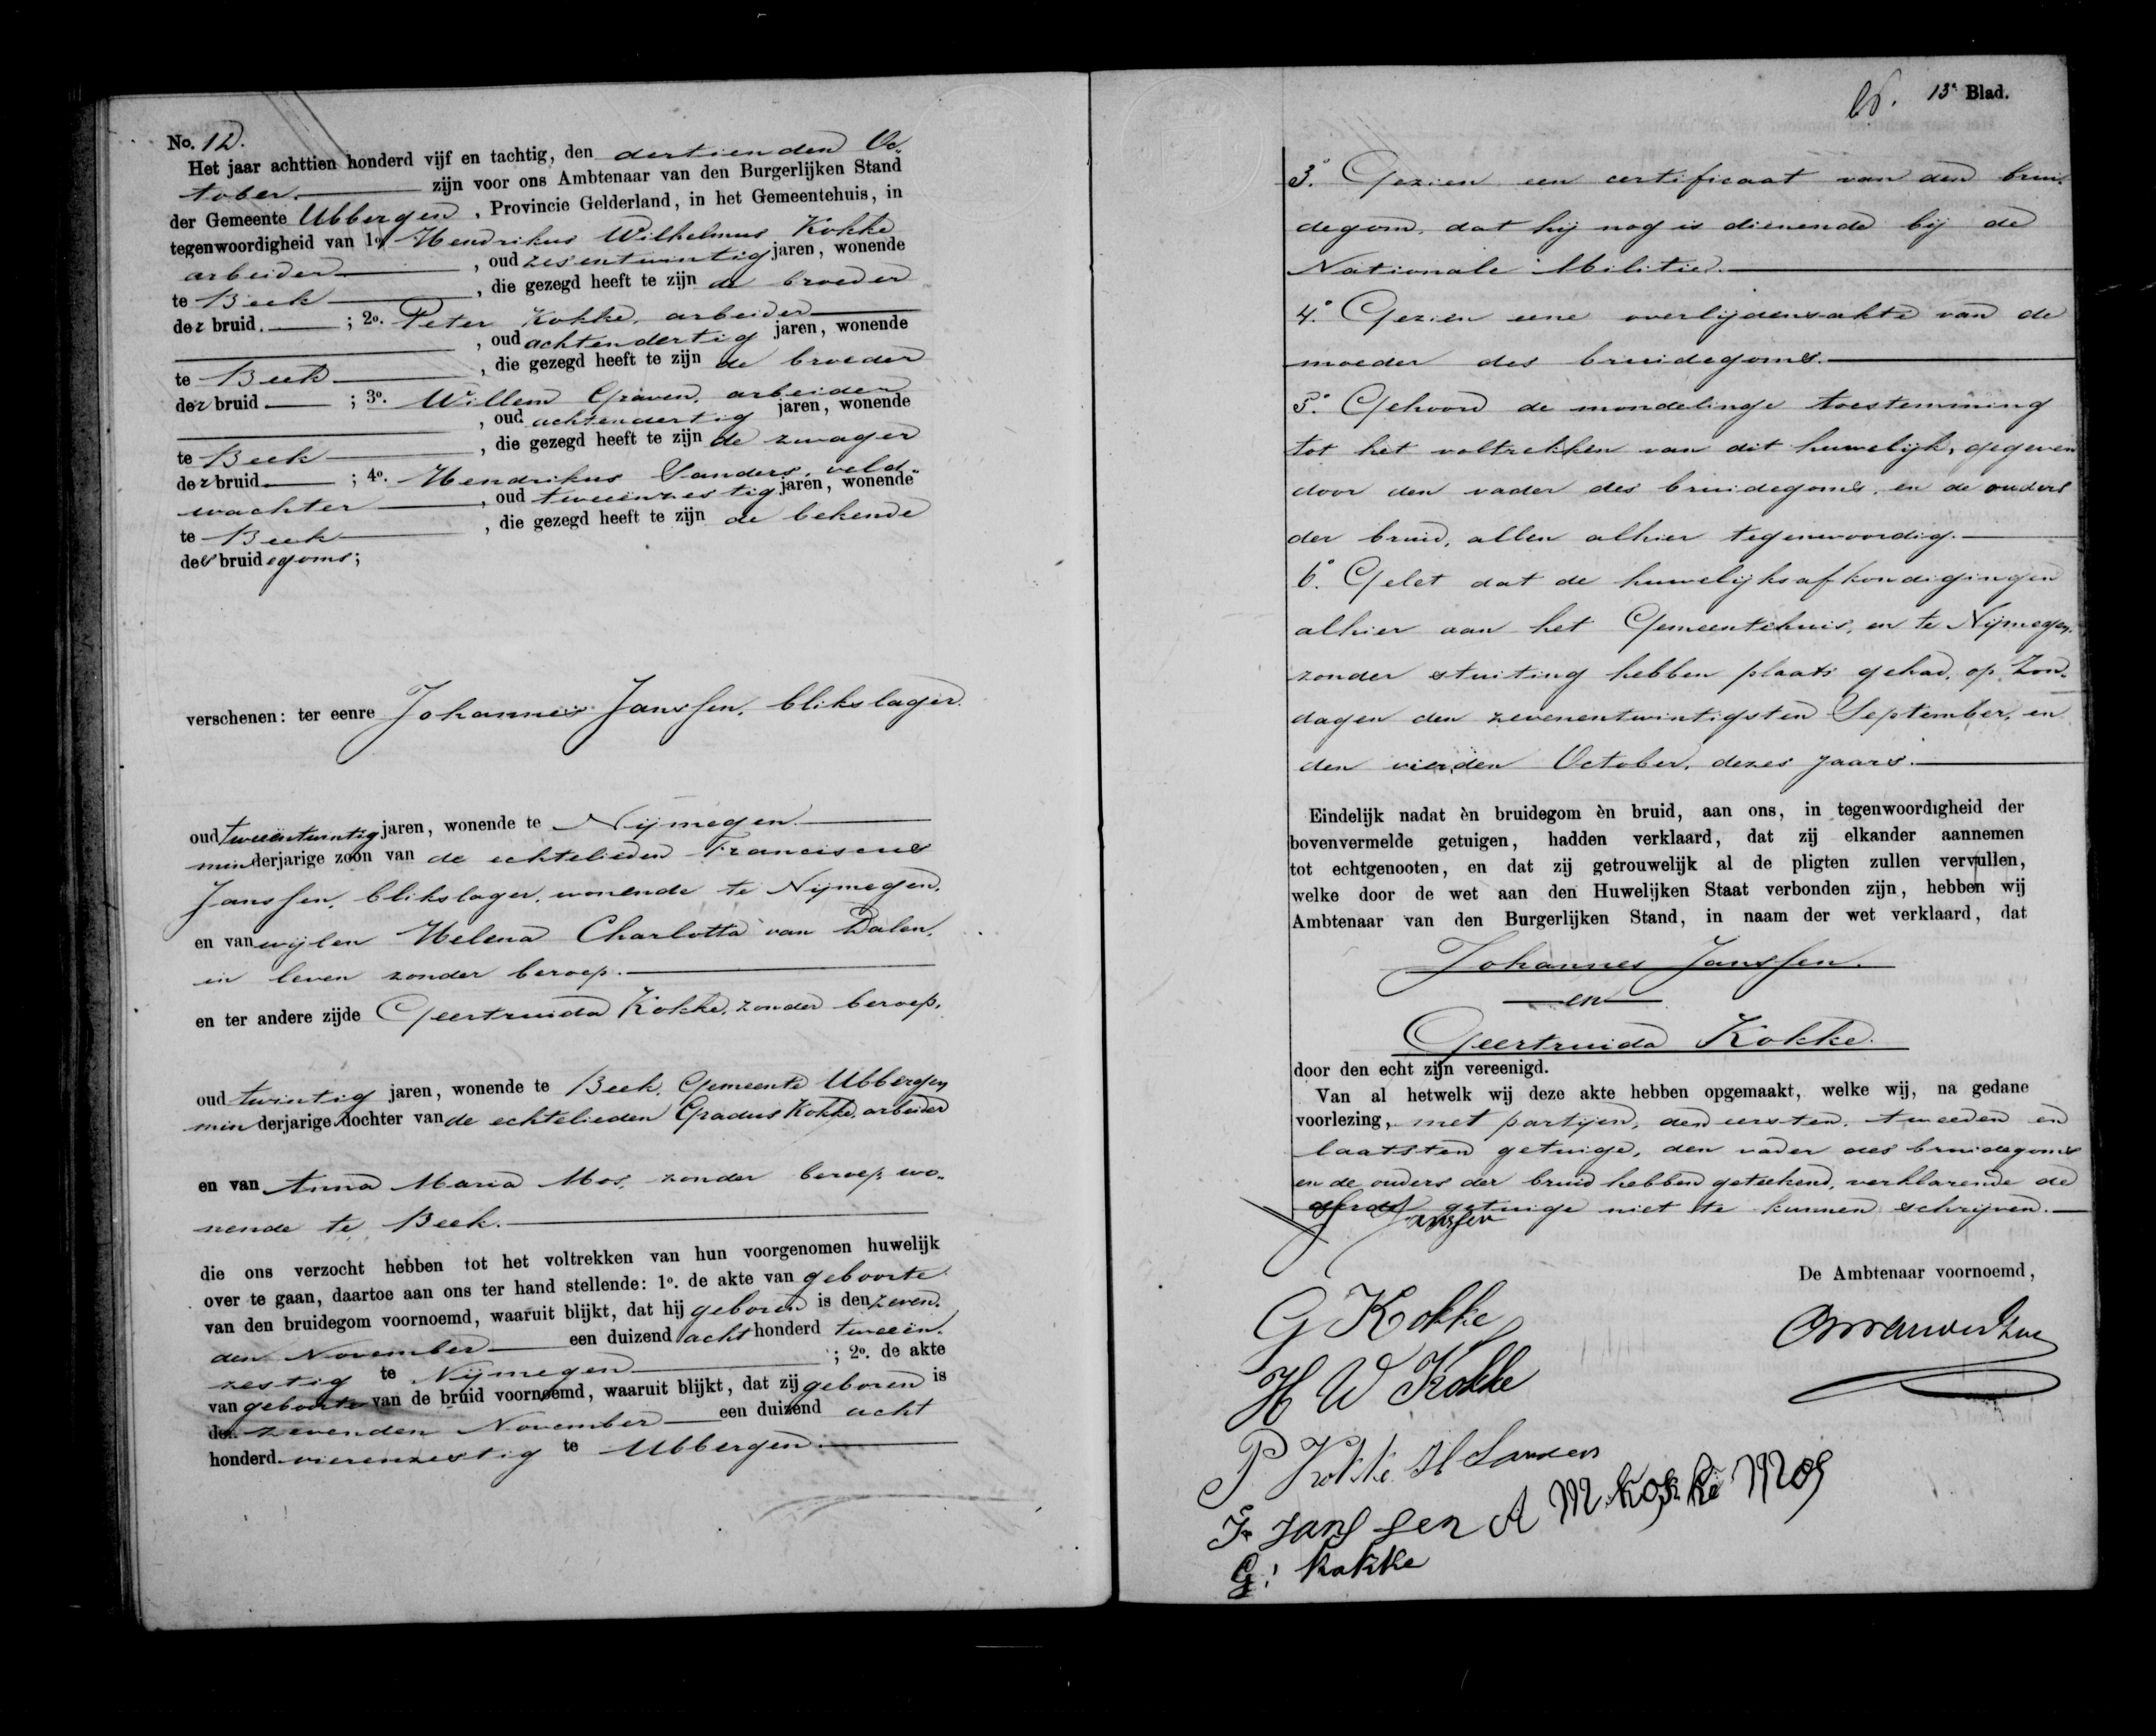 No. 12.
Het jaar achttien honderd vijf en tachtig, den dertienden Oc-
tober. zijn voor ons Ambtenaar van den Burgerlijken Stand
der Gemeente Ubbergen, Provincie Gelderland, in het Gemeentehuis, in
tegenwoordigheid van 1o. Hendrikus Wilhelmus Kokke
arbeider, oud zesentwintig jaren, wonende
te Beek, die gezegd heeft te zijn de broeder
der bruid. ; 2o. Peter Kokke, arbeider
, oud achtendertig jaren, wonende
te Beek, die gezegd heeft te zijn de broeder
der bruid ; 3o. Willem Graven, arbeider
, oud achtendertig jaren, wonende
te Beek, die gezegd heeft te zijn de zwager
der bruid ; 4o. Hendrikus Sanders, veld-
wachter, oud tweeënzestig jaren, wonende
te Beek, die gezegd heeft te zijn de bekende
des bruidegoms;
verschenen: ter eenre Johannes Janssen, blikslager.
oud tweeëntwintig jaren, wonende te Nijmegen.
minderjarige zoon van de echtelieden Franciscus
Janssen, blikslager, wonende te Nijmegen,
en van wijlen Helena Charlotta van Dalen,
in leven zonder beroep.
en ter andere zijde Geertruida Kokke, zonder beroep,
oud twintig jaren, wonende te Beek, Gemeente Ubbergen
minderjarige dochter van de echtelieden Gradus Kokke, arbeider
en van Anna Maria Mos, zonder beroep, wo-
nende te Beek.
die ons verzocht hebben tot het voltrekken van hun voorgenomen huwelijk
over te gaan, daartoe aan ons ter hand stellende: 1o. de akte van geboorte
van den bruidegom voornoemd, waaruit blijkt, dat hij geboren is den zeven-
den November een duizend acht honderd tweeën-
zestig te Nijmegen ; 2o. de akte
van geboorte van de bruid voornoemd, waaruit blijkt, dat zij geboren is
den zevenden November een duizend acht
honderd vierenzestig te Ubbergen.
13e Blad.
3o. Gezien een certificaat van den brui-
degom, dat hij nog is dienende bij de
Nationale Militie.
4o. Gezien eene overlijdensakte van de
moeder des bruidegoms.
5o. Gehoord de mondelinge toestemming
tot het voltrekken van dit huwelijk, gegeven
door den vader des bruidegoms, en de ouders
der bruid, allen alhier tegenwoordig.
6o. Gelet dat de huwelijksafkondigingen
alhier aan het Gemeentehuis, en te Nijmegen
zonder stuiting hebben plaats gehad, op Zon-
dagen den zevenentwintigsten September, en
den vierden October, dezes jaars.
Eindelijk nadat èn bruidegom èn bruid, aan ons, in tegenwoordigheid der
bovenvermelde getuigen, hadden verklaard, dat zij elkander aannemen
tot echtgenooten, en dat zij getrouwelijk al de pligten zullen vervullen,
welke door de wet aan den Huwelijken Staat verbonden zijn, hebben wij
Ambtenaar van den Burgerlijken Stand, in naam der wet verklaard, dat
Johannes Janssen.
en
Geertruida Kokke.
door den echt zijn vereenigd.
Van al hetwelk wij deze akte hebben opgemaakt, welke wij, na gedane
voorlezing, met partijen, den eersten, tweeden en
laatsten getuige, den vader des bruidegoms
en de ouders der bruid hebben geteekend, verklarende de
derde getuige niet te kunnen schrijven.
Janssen
De Ambtenaar voornoemd,
G Kokke
H W Kokke
P Kokke H Sanders
Fr Janssen A M Kokke Mos
G: Kokke